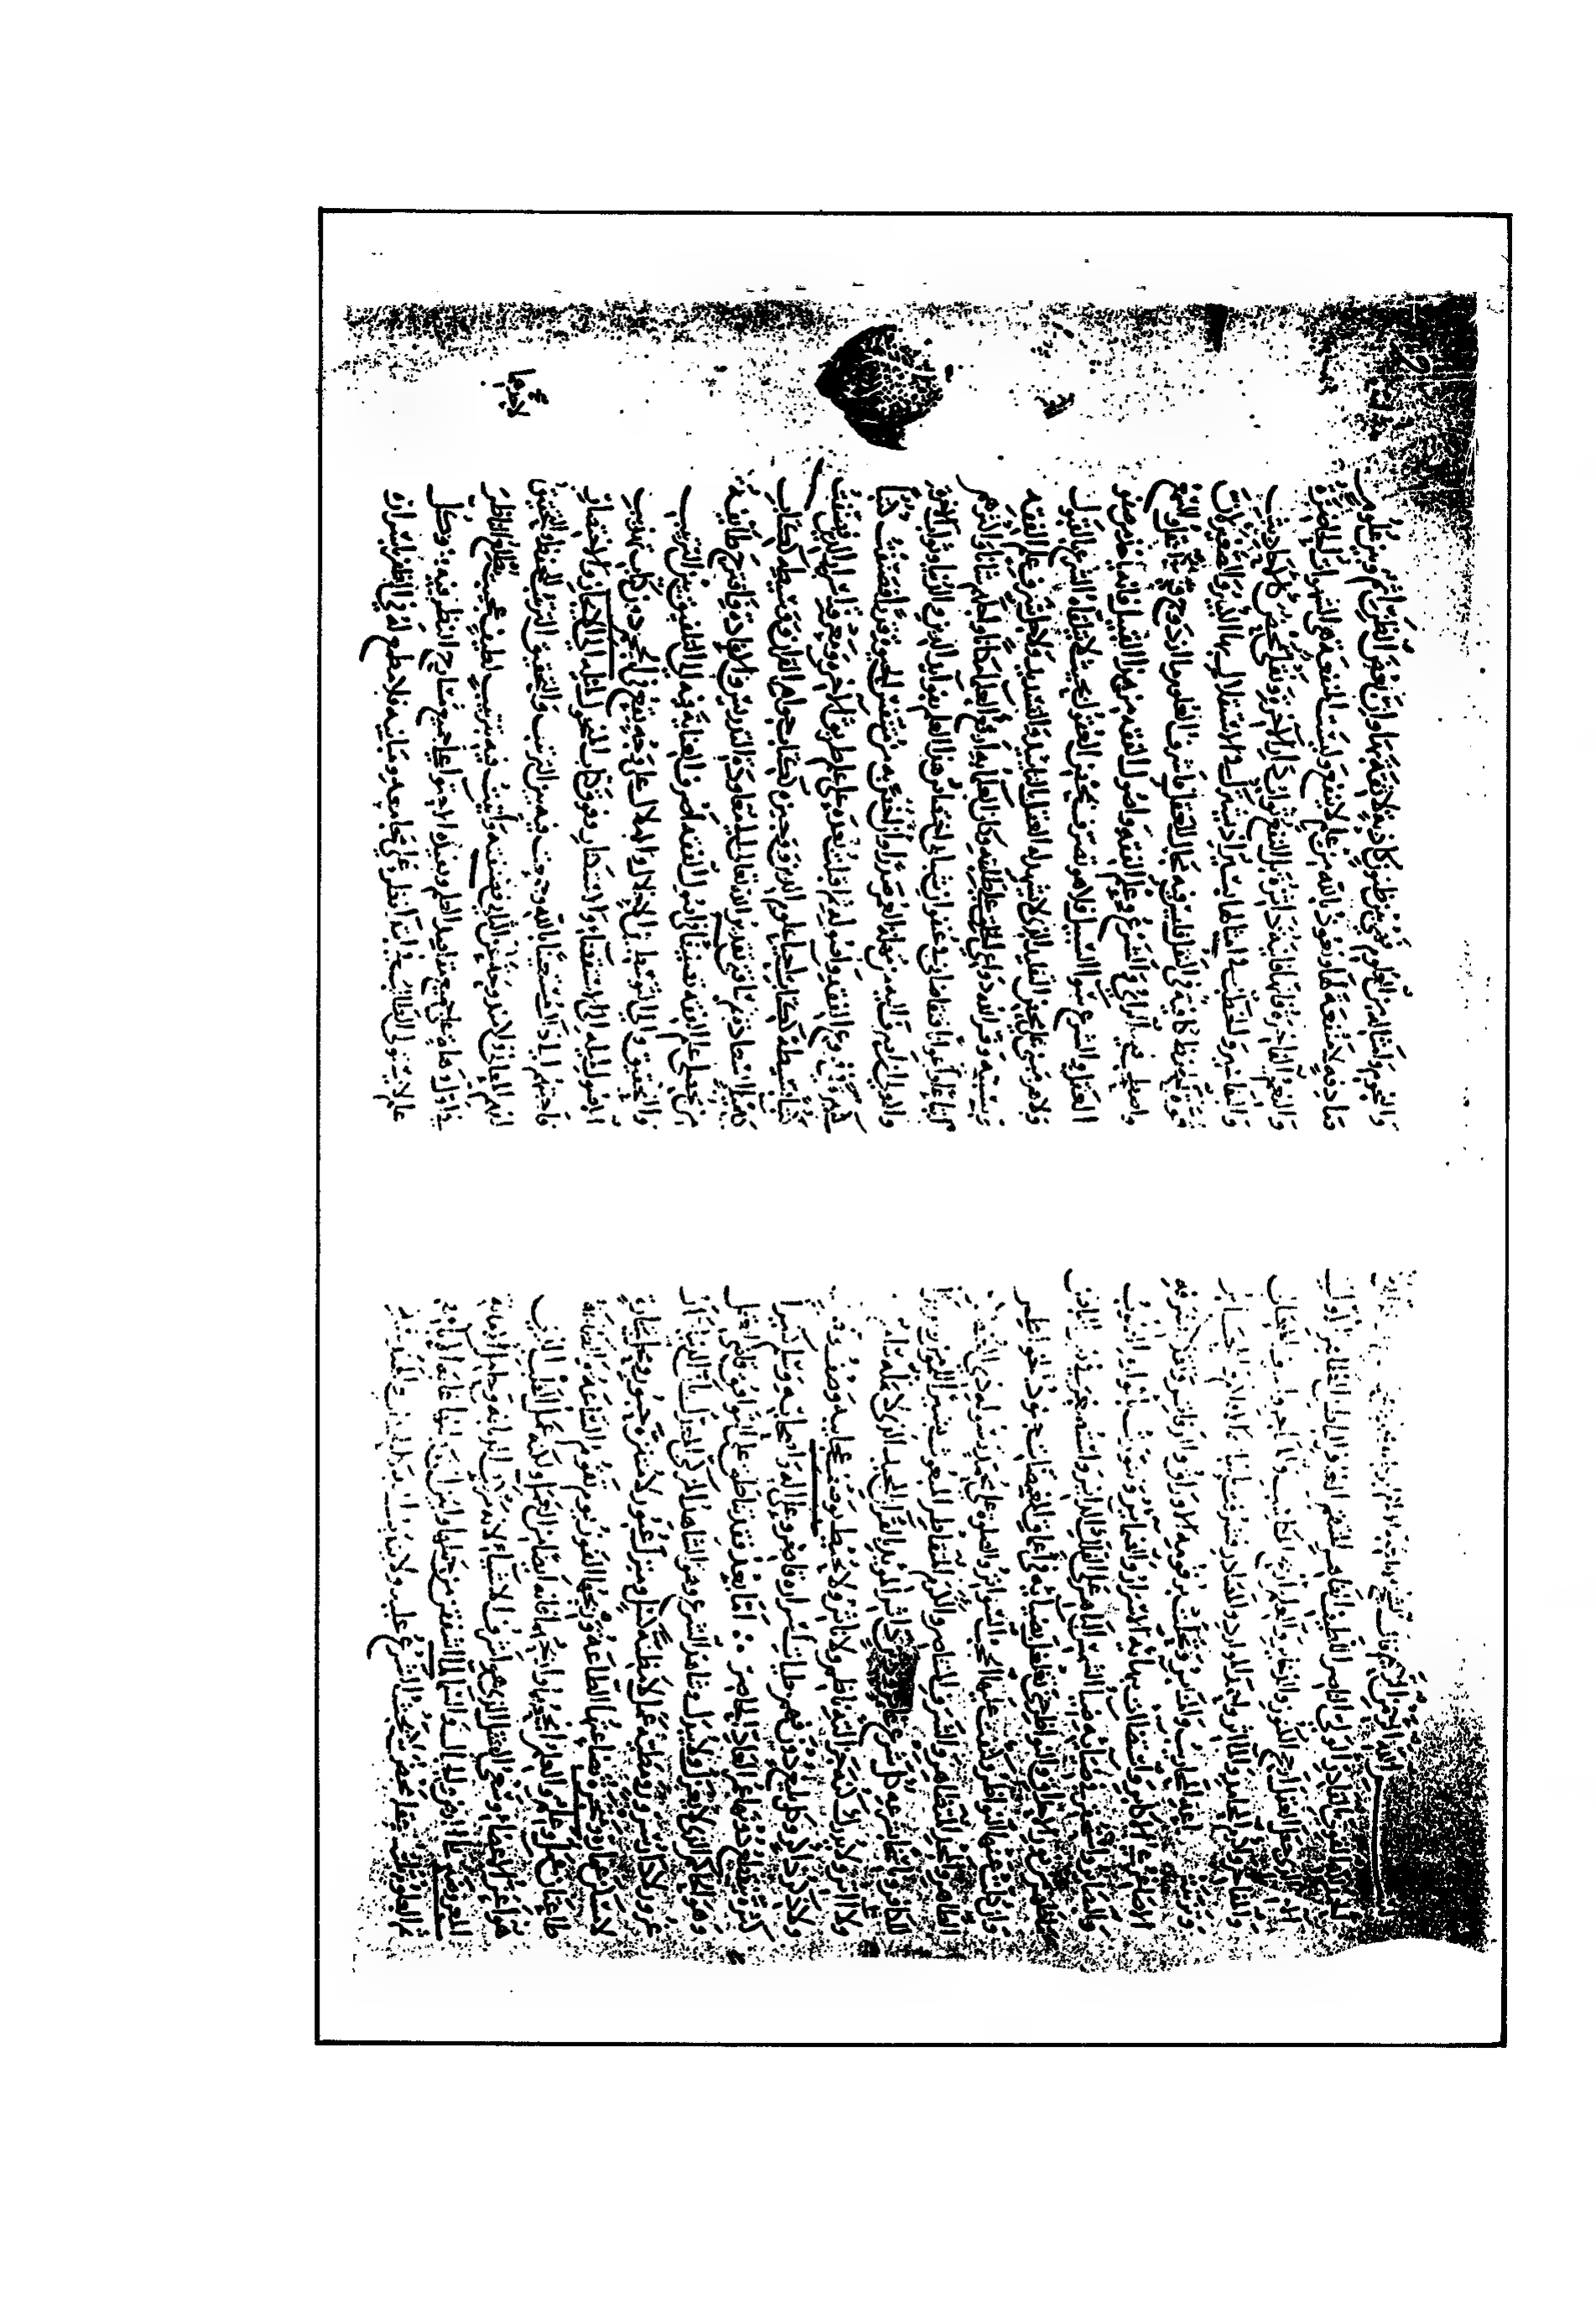 بسم الله الرحمن الرحيم
الحمد لله القوي القادر الولي الناصر اللطيف القاهر المنتقم الباطن الظاهر الاول
الاخر الذي جعل العقل ارجح الكنوز والذخاير والعلم اربح المكاسب
والمفاخر واكرم المحامد والمآثر واحمد الموارد والمصادر فشرفت الاقلام والمحابر
وتزينت المحاريب والمنابر وتحلت برقومه الاوراق والدفاتر
الاصاغر على الاكابر واستضاءت ببهائه الاسرار والضماير وتنورت بانواره القلوب
والبصاير واستحقر في ضيائه ضياء الشمس الباهر على الفلك الداير واستصغر في نوره الباطن
ما ظهر من نور الاحداق والنواظر حتى تغلغل بضيائه في اعماق المغمضات جنود الخواطر
وان كلت عنها النواظر وكثفت عليها الحجب والسواتر والصلوة على محمد رسوله ذي العنصر
الطاهر والمجد المتظاهر والشرف المتناصر والكرم المتقاطر المبعوث بشيرا للمؤمنين ونذيرا
للكافرين وناسخا بشرعه كل شرع غابر ودين داثر المؤيد بالقران المجيد الذي لا يمله سامع
ولا اثر ولا يدرك كنه جزالته ناظم ولا ناثر ولا يحيط بعجايبه وصف
ولا ذكر ذاكر وكل بليغ دون فهم جليات اسراره قاصر وعلى اله واصحابه وسلم كثيرا
كثرة ينقطع دونها عمر العاد الحاصر اما بعد فقد تناطق قاضي العقل
وهو الحاكم الذي لا يعزل ولا يبدل وشاهد الشرع وهو الشاهد المزكى المعدل بان الدنيا دار
غرور لا دار سرور ومطية عمل لا مطية كسل ومنزل عبور لا متنزه حبور ومحل تجارة
لا مسكن عمارة ومتجر بضاعتها الطاعة وربحها الفوز يوم تقوم الساعة والطاعة
طاعتان عمل وعلم والعلم انجحها واربحها فانه ايضا من العمل ولكنه عمل القلب الذي
هو اعز الاعضاء وسعي العقل الذي هو اشرف الاشياء لانه مركب الديانة وحامل الامانة
اذ عرضت على الارض والجبال والسماء فاشفقن من حملها وابين ان يحملنها غاية الاباء
ثم العلوم ثلثة عقلي محض لا يحث الشرع عليه ولا يندب اليه كالحساب والهندسة
والنجوم وامثاله من العلوم فهي بين ظنون كاذبة لا ثقة بها وان بعض الظن اثم وبين علوم
صادقة لا منفعة لها ونعوذ بالله من علم لا ينفع وليست المنفعة في الشهوات الحاضرة
والنعم الفاخرة فانها فانية داثرة بل النفع ثواب دار الاخرة ونقلي محض كالاحاديث
والتفاسير والخطب في امثالها يسير اذ يستوي في الاستقلال بها الصغير والكبير لان
قوة الحفظ كافية في النقل وليس فيها مجال للعقل واشرف العلوم ما ازدوج فيه العقل والسمع
واصطحب فيه الراي والشرع وعلم الفقه واصول الفقه من هذا القبيل فانه ياخذ من صفو
العقل والشرع سواء السبيل فلا هو تصرف بمحض العقول بحيث لا يتلقاه الشرع بالقبول
ولا هو مبني على محض التقليد الذي لا يشهد له العقل بالتاييد والتسديد ولاجل شرف علم الفقه
وسببه وفر الله دواعي الخلق على طلبه وكان العلماء به ارفع العلماء مكانا واجلهم شانا واكثرهم
اتباعا واعوانا فتقاضاني في عنفوان شبابي اختصاص هذا العلم بفوايد الدين والدنيا وثواب الاخرة
والاولى ان اصرف اليه من مهلة العمر صدرا وان اخص به من متنفس الحياة قدرا فصنفت كتبا
كثيرة في فروع الفقه واصوله ثم اقبلت بعده على علم طريق الاخرة ومعرفة اسرار الدين فصنفت
كتبا بسيطة ككتاب احياء علوم الدين ووجيزة ككتاب جواهر القران ووسيطة ككتاب
كيمياء السعادة ثم ساقني تقدير الله تعالى الى معاودة التدريس والافادة فاقترح طائفة
من محصلي علم الفقه تصنيفا في اصول الفقه اصرف العناية فيه الى التلفيق بين الترتيب
والتحقيق والى التوسط بين الاخلال والاملال على وجه يقع في الحجم دون كتاب تهذيب
الاصول لميله الى الاستقصاء والاستكثار وفوق كتاب المنخول لميله الى الايجاز والاختصار
فاجبتهم الى ذلك مستعينا بالله وجمعت فيه بين الترتيب والتحقيق
لفهم المعاني ولا مندوحة عن الثاني فصنفته واتيت فيه بترتيب لطيف عجيب يطلع الناظر
في اول وهلة على جميع مقاصد العلم ويفيده الاحتواء على جميع مسارح النظر فيه وكل
علم لا يستولي الطالب في ابتداء نظره على مجامعه ومبانيه فلا مطمع له في الظفر باسراره